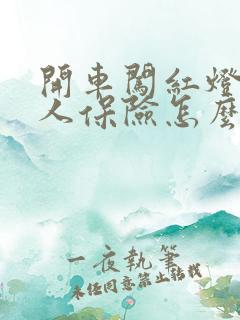 開車闖紅燈
人保險怎麼
一夜執筆
未經同意禁止轉載